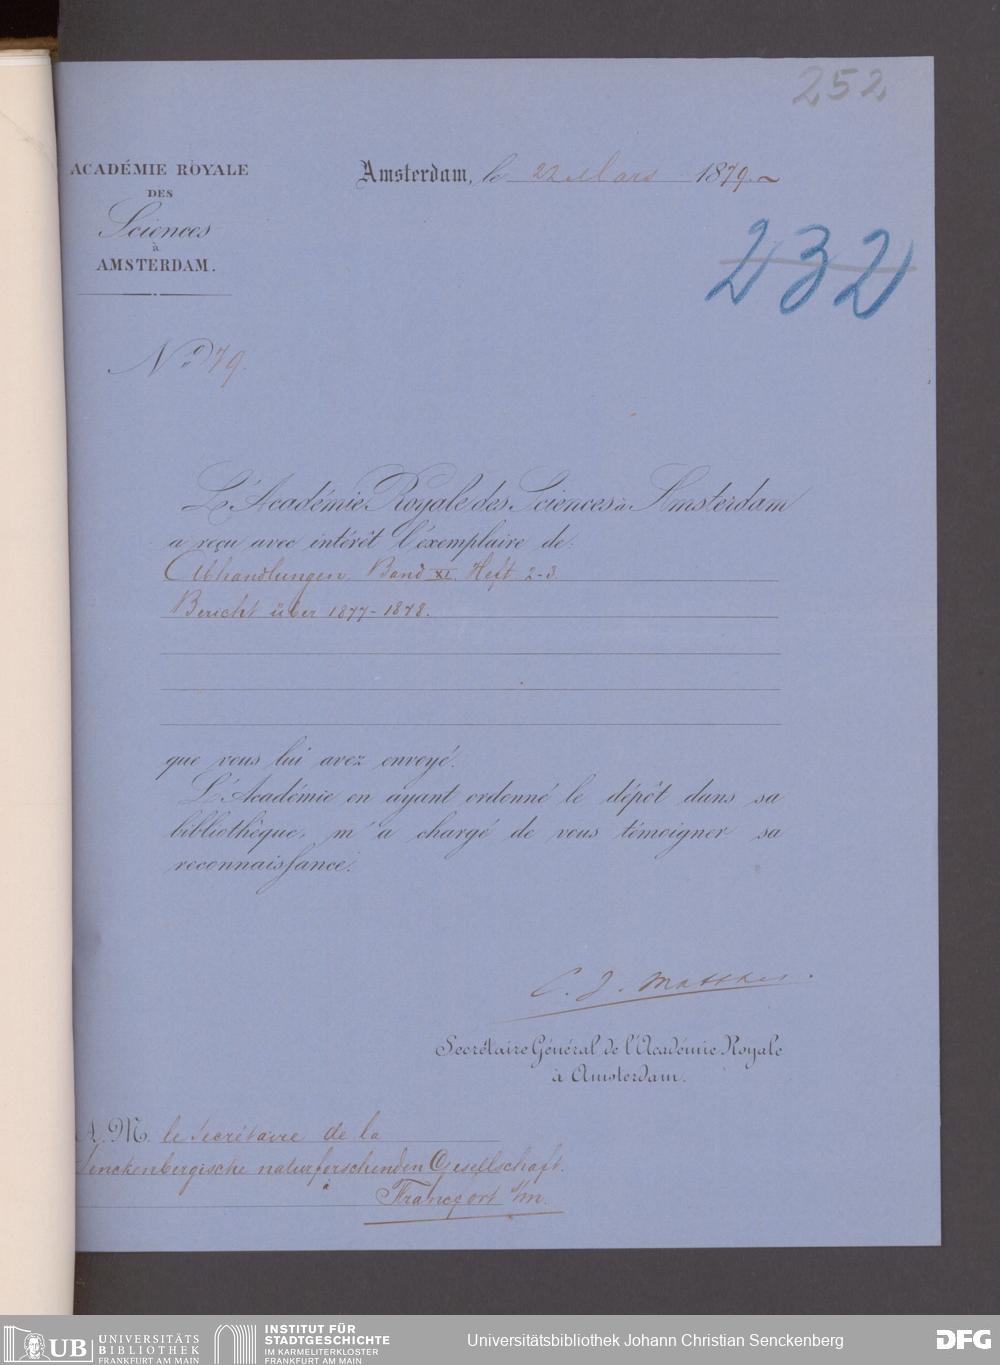 252
ACADÉMIE ROYALE
DES
Sciences
à
AMSTERDAM.
Amsterdam, le 22 Mars 1879.
232
No 79.
L'Académie Royale des Sciences à Amsterdam
a reçu avec intérêt l'exemplaire de:
Abhandlungen. Band XI. Heft 2-3.
Bericht über 1877-1878.
que vous lui avez envoyé.
L'Académie en ayant ordonné le dépôt dans sa
bibliothèque, m'a chargé de vous témoigner sa
reconnaissance.
C. J. Matthes.
Secrétaire Général de l'Académie Royale
à Amsterdam.
A. M. le Secrétaire de la
Senckenbergische naturforschenden Gesellschaft.
Francfort s/m.
UB UNIVERSITÄTS
BIBLIOTHEK
FRANKFURT AM MAIN
INSTITUT FÜR
STADTGESCHICHTE
IM KARMELITERKLOSTER
FRANKFURT AM MAIN
Universitätsbibliothek Johann Christian Senckenberg
DFG